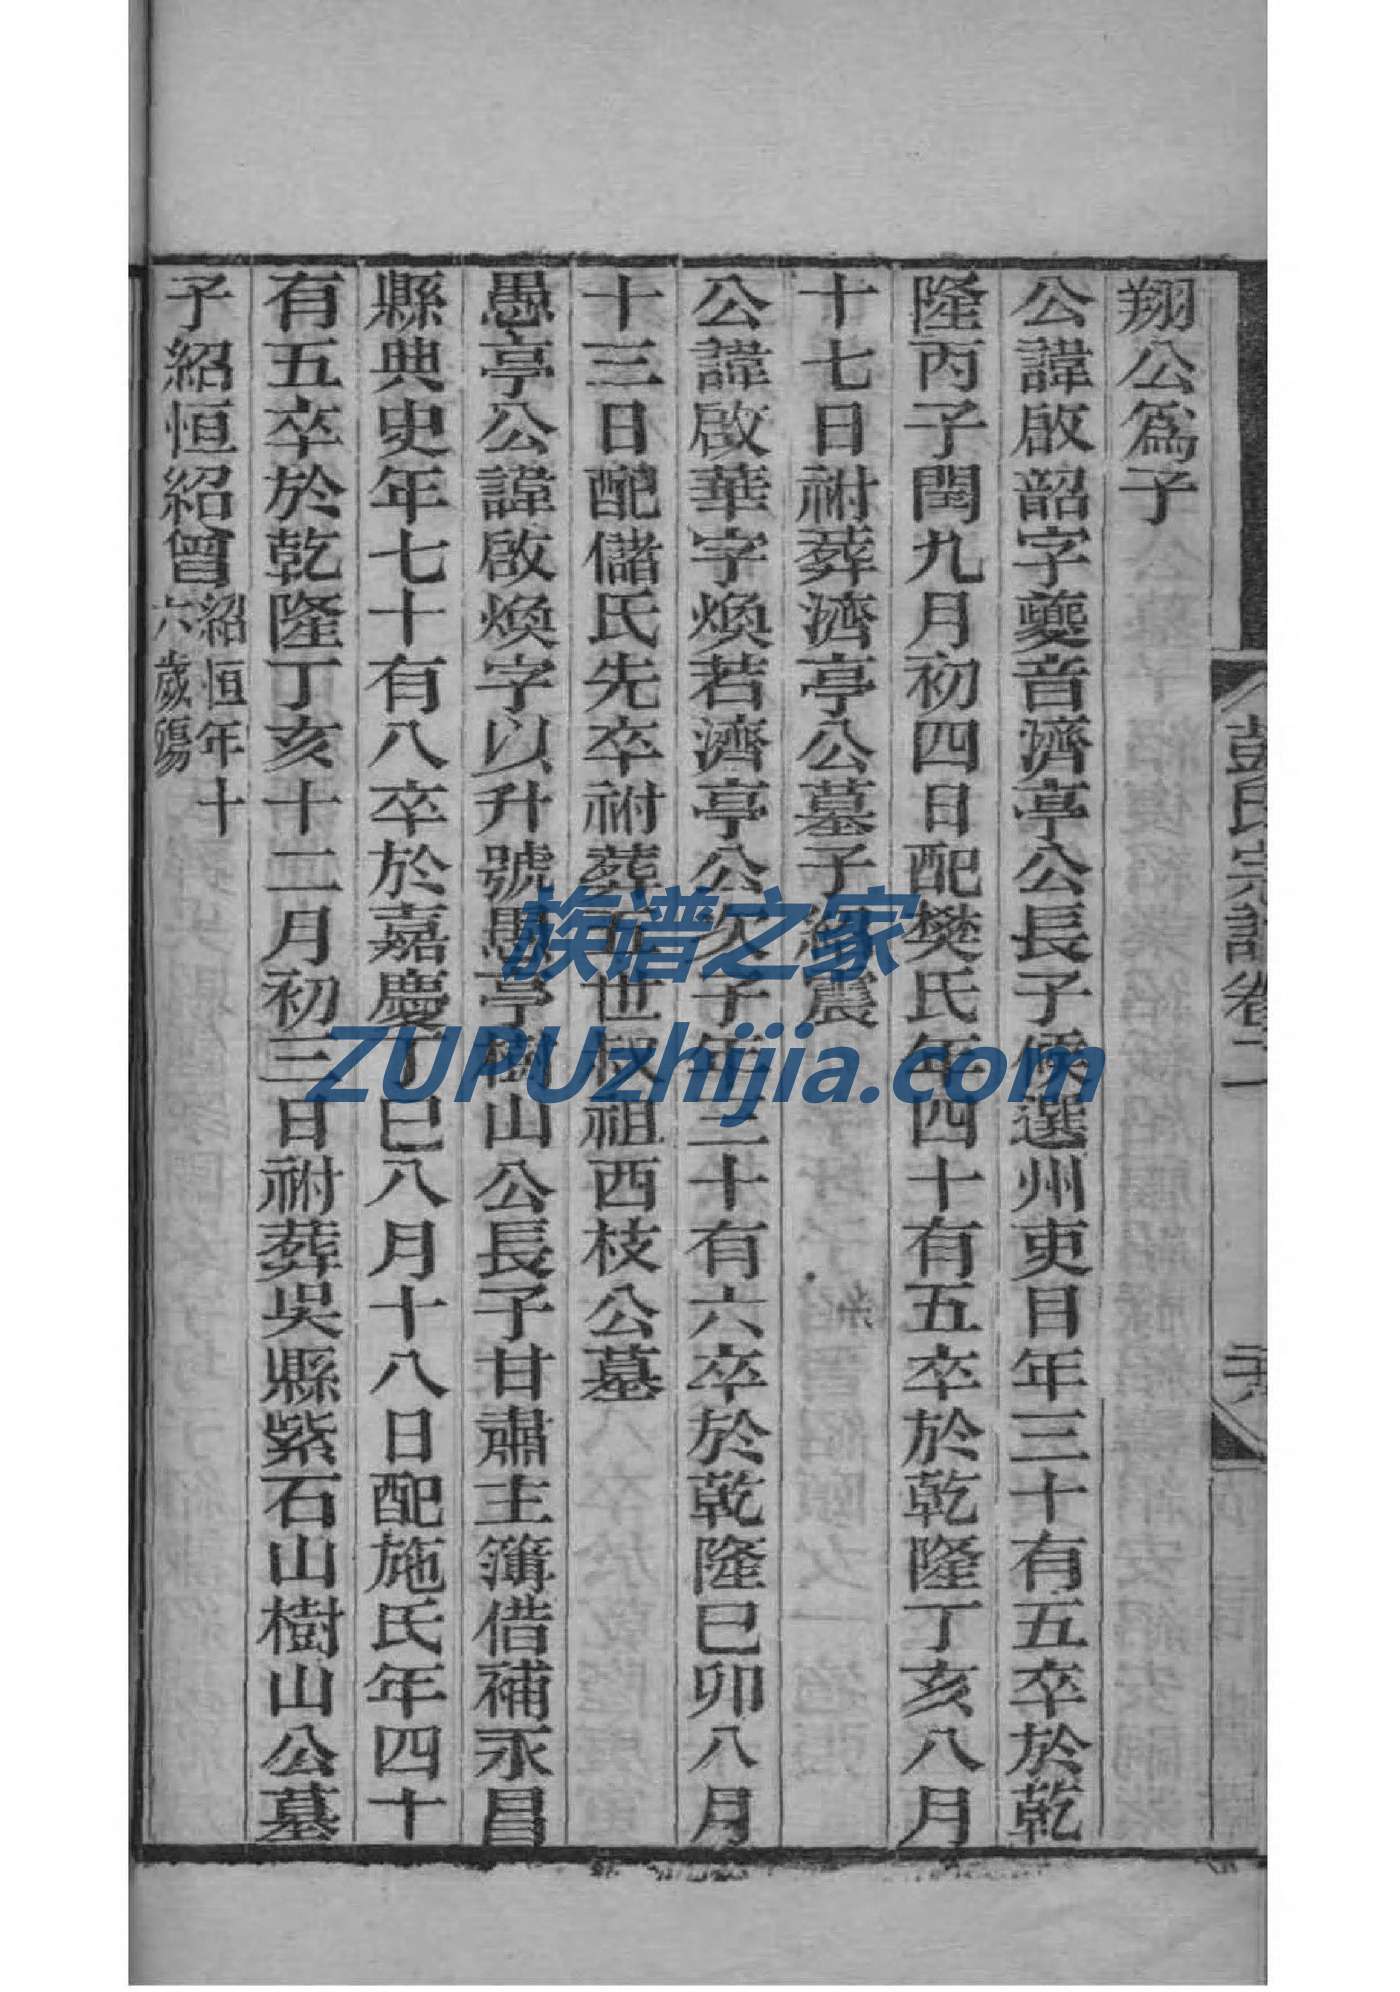 翔公爲子
公諱啟韶字夔音濟亭公長子候選州吏目年三十有五卒於乾
隆丙子閏九月初四日配樊氏年四十有五卒於乾隆丁亥八月
十七日祔葬濟亭公墓子紹震
公諱啟華字煥若濟亭公次子年三十有六卒於乾隆巳卯八月
十三日配儲氏先卒祔葬五世叔祖西枝公墓
愚亭公諱啟煥字以升號愚亭樹山公長子甘肅主簿借補永昌
縣典史年七十有八卒於嘉慶丁巳八月十八日配施氏年四十
有五卒於乾隆丁亥十二月初三日祔葬吳縣紫石山樹山公墓
子紹恒紹曾紹恒年十
六歲殤
彭氏宗譜卷二
族谱之家
ZUPUzhijia.com